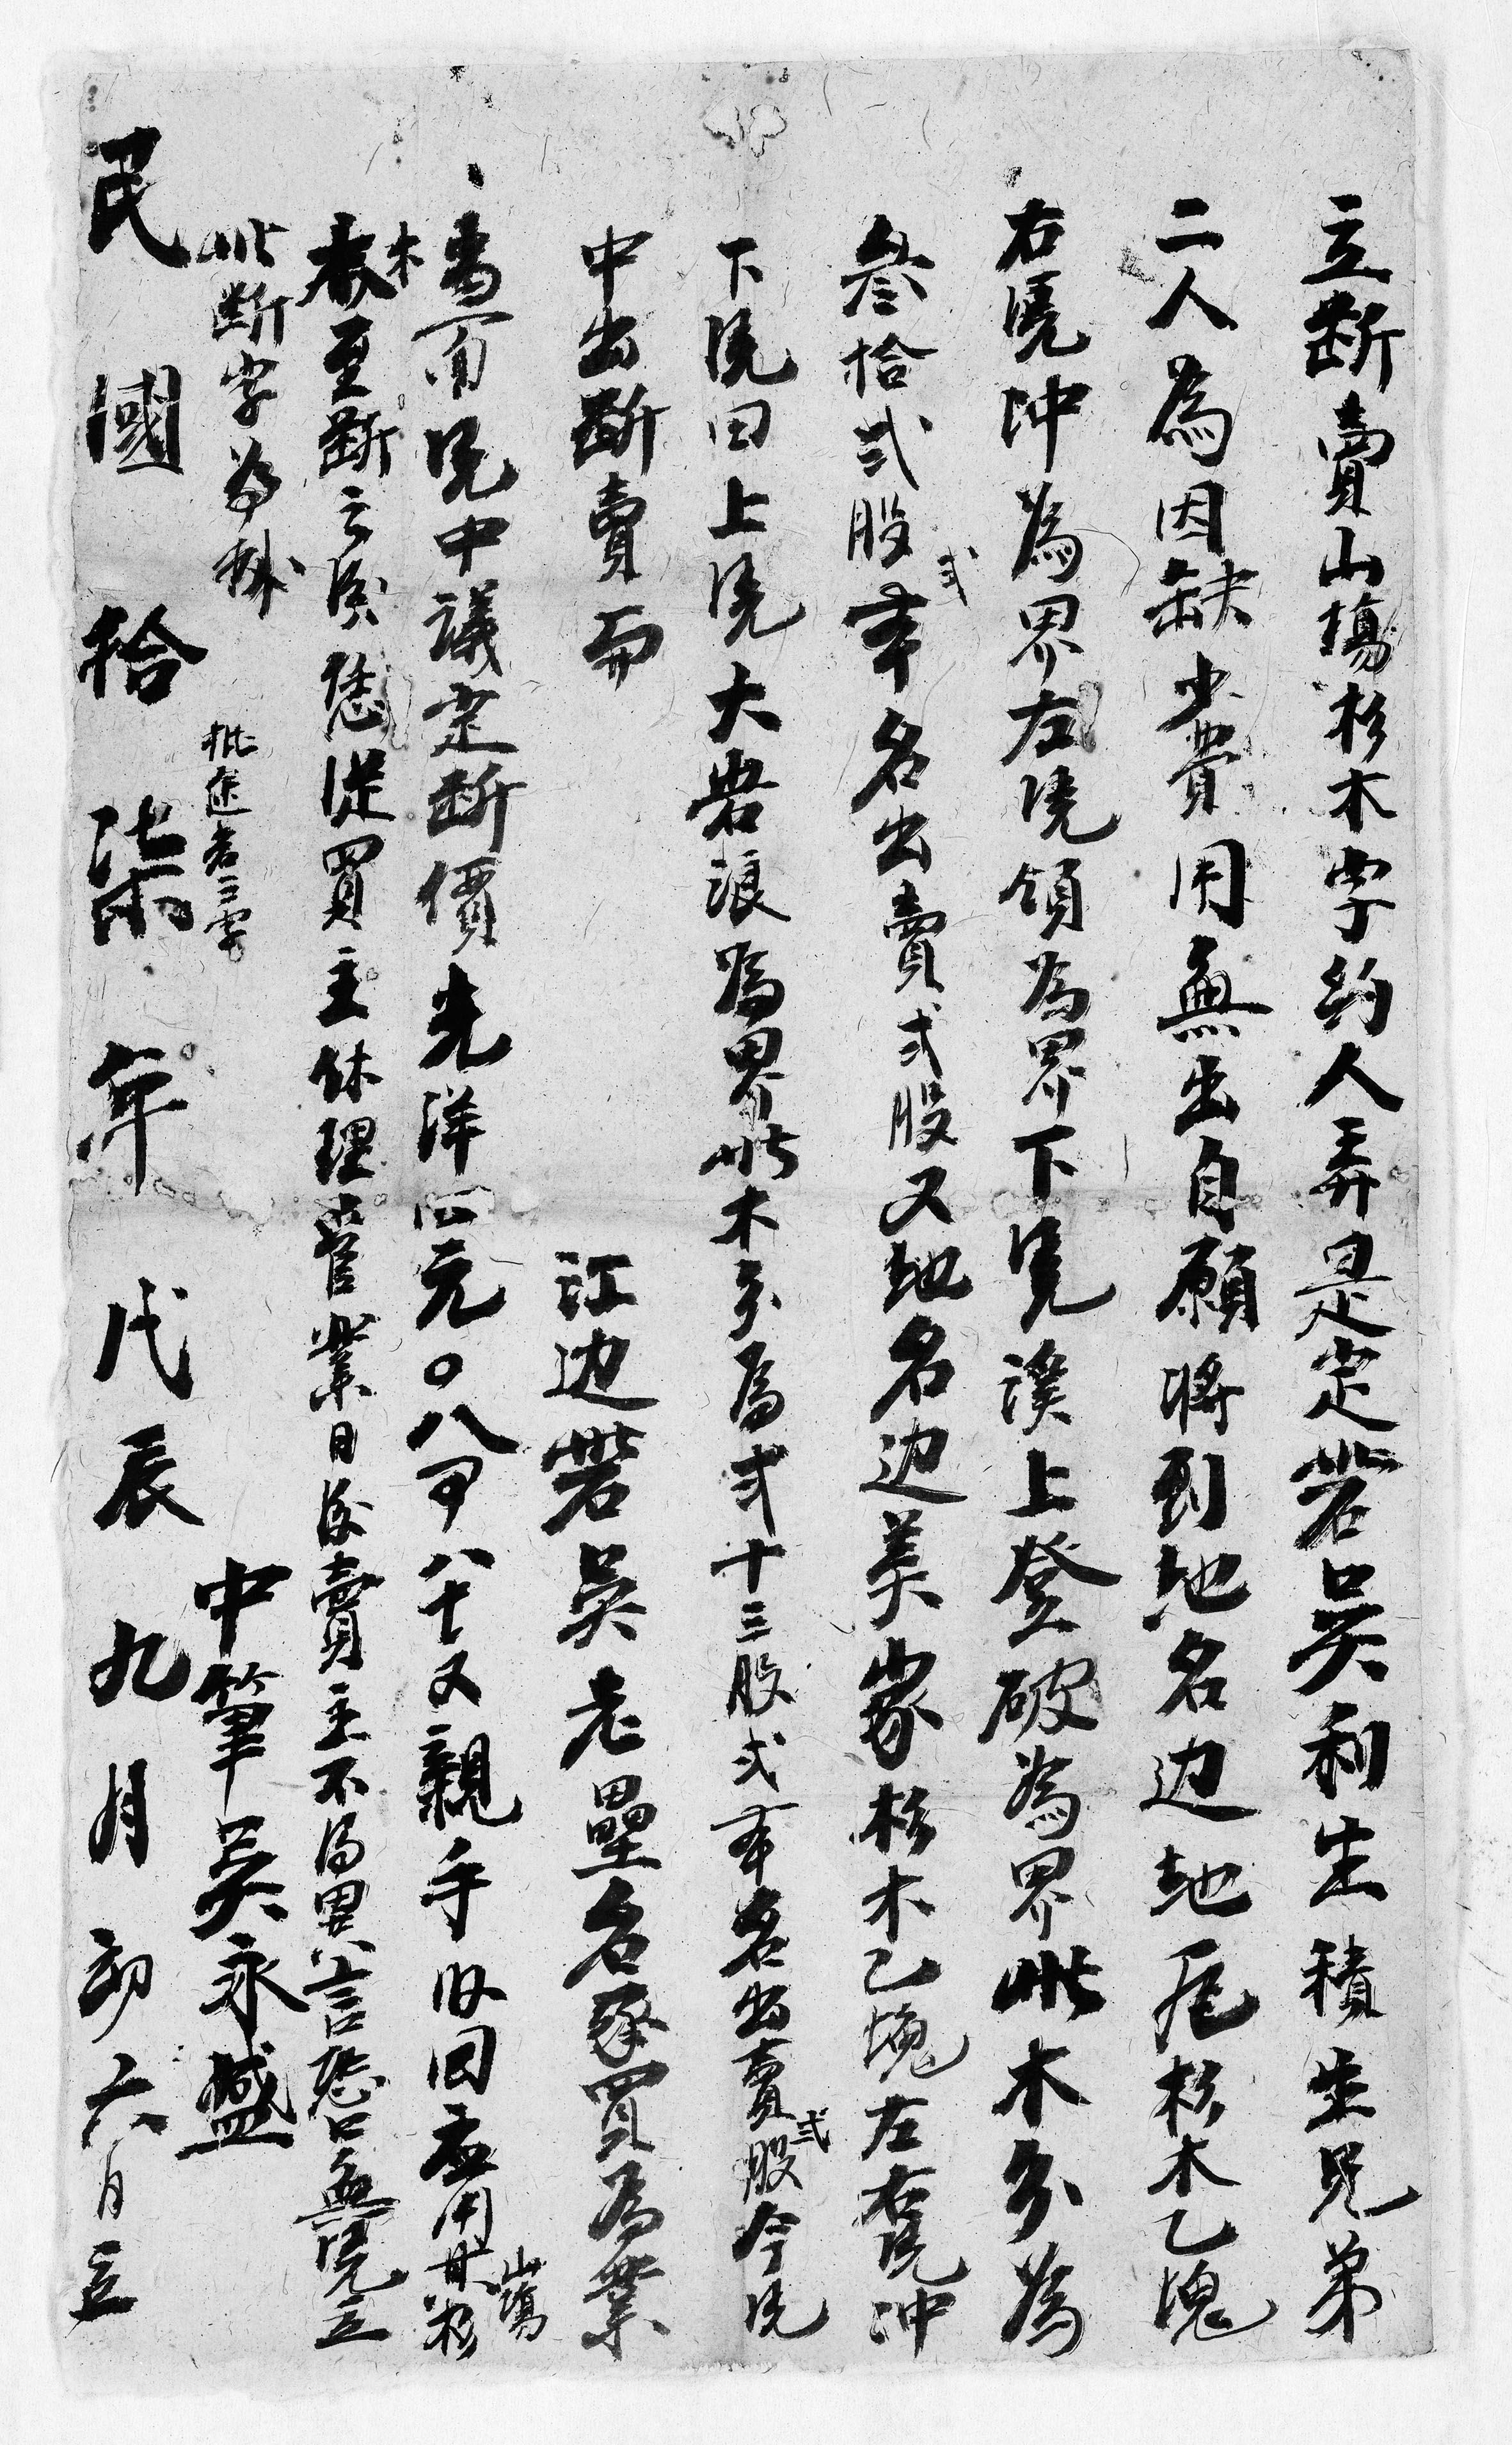 立断賣山塲杉木字約人弄是定岩吳利生積生兄弟
二人為因缺少費用無出自願將到地名边地尾杉木乙塊
右凴冲為界左凴領為界下凴溪上登破為界此木分為
叁拾弍股弍本名出賣弍股又地名边美家杉木乙塊左右凴冲
下凴田上凴大岩浪為界此木分為弍十三股弍本名出賣弍股今凴
中出断賣而
江边岩吳老壘名承買為業
當面凴中議定断價光洋四元〇八仙八十文親手收回应用其山塲杉
木至断之後恁從買主休理管業日後賣主不得異言恐口無凴立
此断字為據
批途名二字
中筆吳永盛
民國拾柒年戊辰九月初六日立